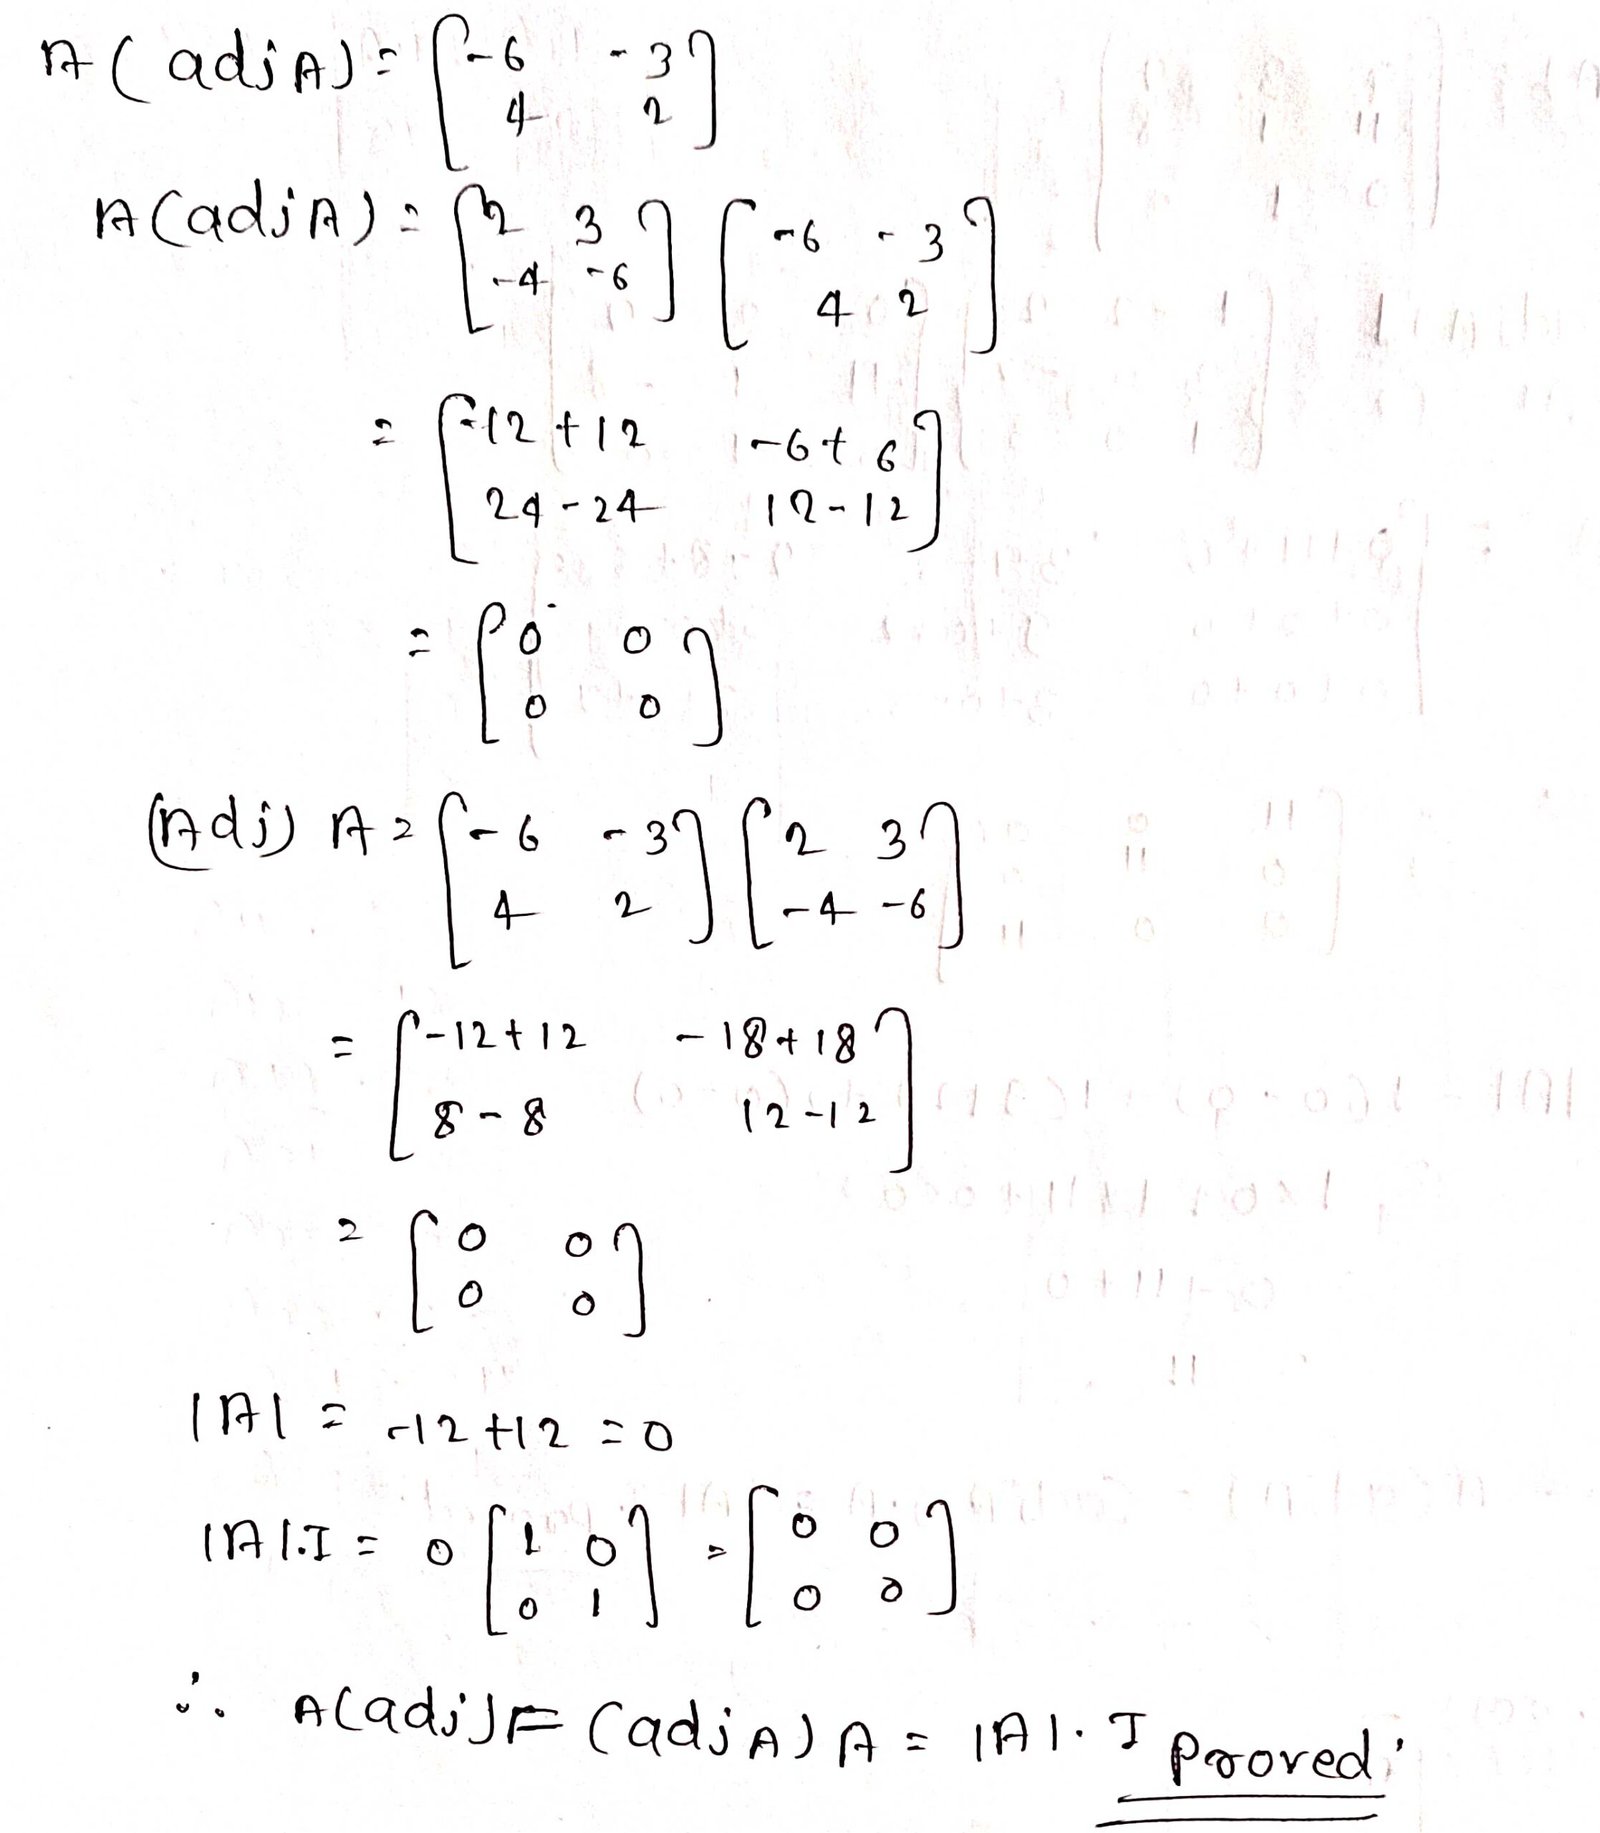 A(adjA) = [-6 -3
4 2]
A(adjA) = [2 3 [-6 -3
-4 -6] 4 2]
= [-12+12 -6+6
24-24 12-12]
= [0 0
0 0]
(Adj) A = [-6 -3] [2 3
4 2 -4 -6]
= [-12+12 -18+18
8-8 12-12]
= [0 0
0 0]
|A| = -12+12 = 0
|A|.I = 0 [1 0 = [0 0
0 1] 0 0]
∴ A(adj) = (adjA) A = |A|. I Prooved.